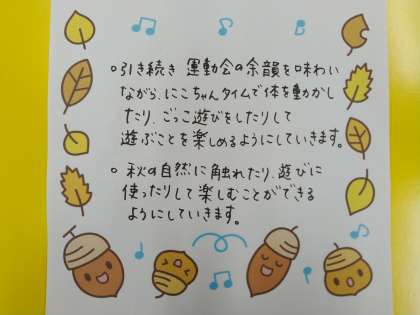 ○引き続き 運動会の余韻を味わい
ながら、にこちゃんタイムで体を動かし
たり、ごっこ遊びをしたりして
遊ぶことを楽しめるようにしていきます。
○ 秋の自然に触れたり、遊びに
使ったりして楽しむことができる
ようにしていきます。